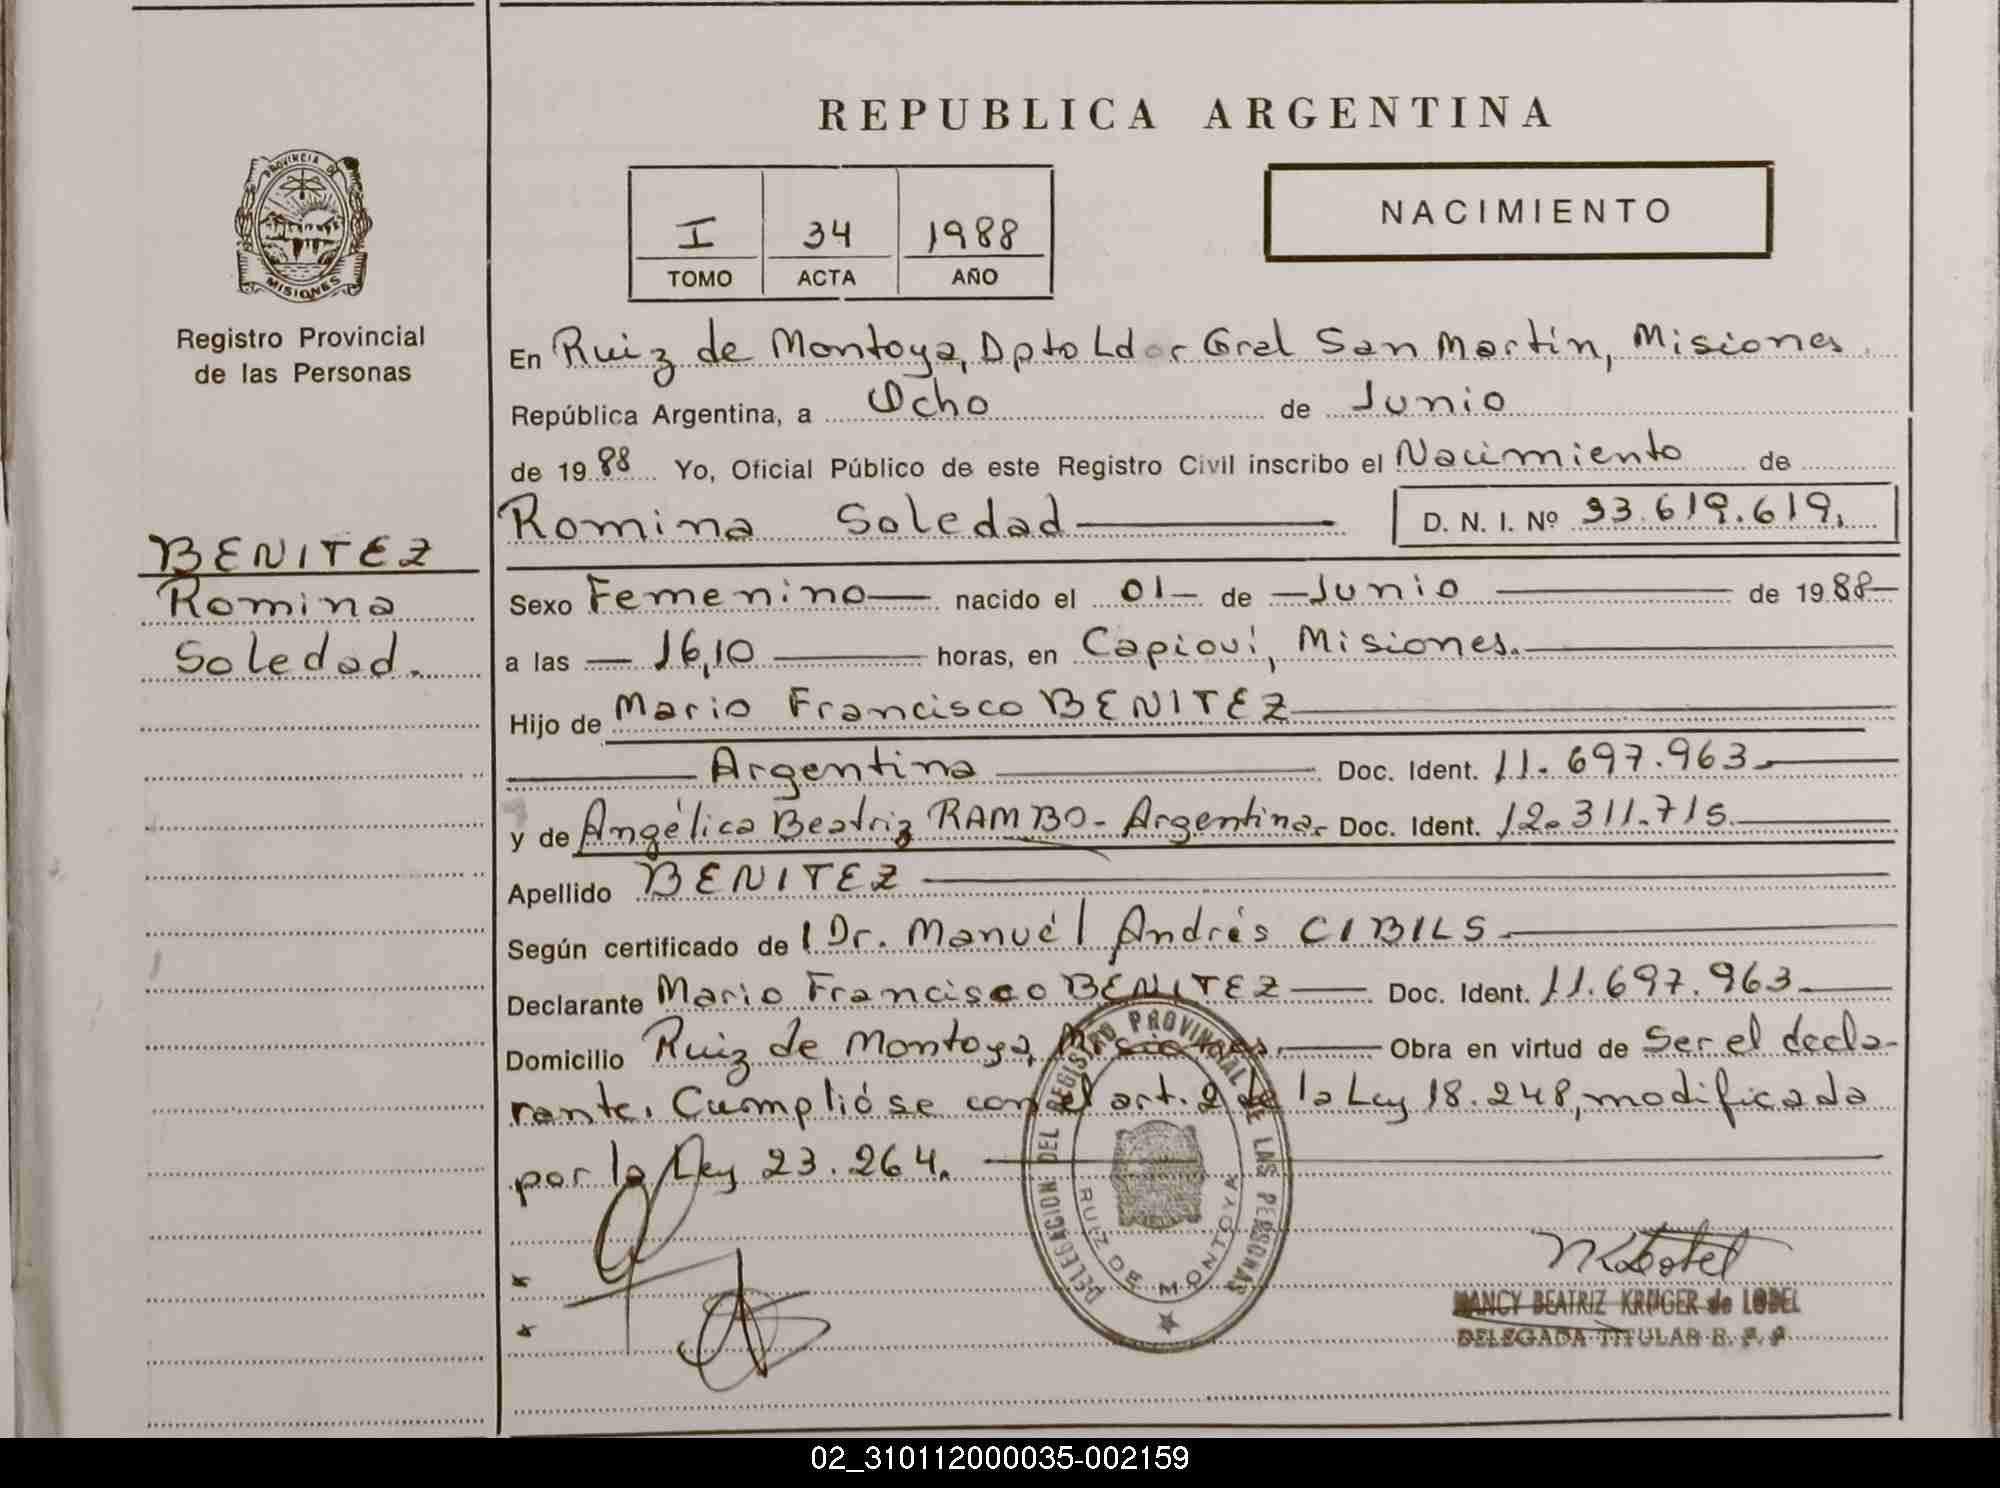 REPUBLICA ARGENTINA
PROVINCIA DE
MISIONES
Registro Provincial
de las Personas
I 34 1988
TOMO ACTA AÑO
NACIMIENTO
En Ruiz de Montoya, Dpto Ldor Gral San Martín, Misiones.
República Argentina, a Ocho de Junio
de 19 88 Yo, Oficial Público de este Registro Civil inscribo el Nacimiento de
Romina Soledad D. N. I. Nº 33.619.619.
BENITEZ
Romina
Soledad.
Sexo Femenino nacido el 01 - de - Junio de 19 88 -
a las - 16,10 horas, en Capioví, Misiones.
Hijo de Mario Francisco BENITEZ
Argentina Doc. Ident. 11.697.963
y de Angélica Beatriz RAMBO - Argentina. Doc. Ident. 12.311.715
Apellido BENITEZ
Según certificado de l Dr. Manuél Andrés CIBILS
Declarante Mario Francisco BENITEZ Doc. Ident. 11.697.963
Domicilio Ruiz de Montoya, Misiones. Obra en virtud de Ser el decla-
rante. Cumplióse con el art. 2 de la Ley 18.248, modificada
por la Ley 23.264.
DELEGACION DEL REGISTRO PROVINCIAL DE LAS PERSONAS
RUIZ DE MONTOYA
NANCY BEATRIZ KRUGER de LOBEL
DELEGADA TITULAR R. P. P
02_310112000035-002159